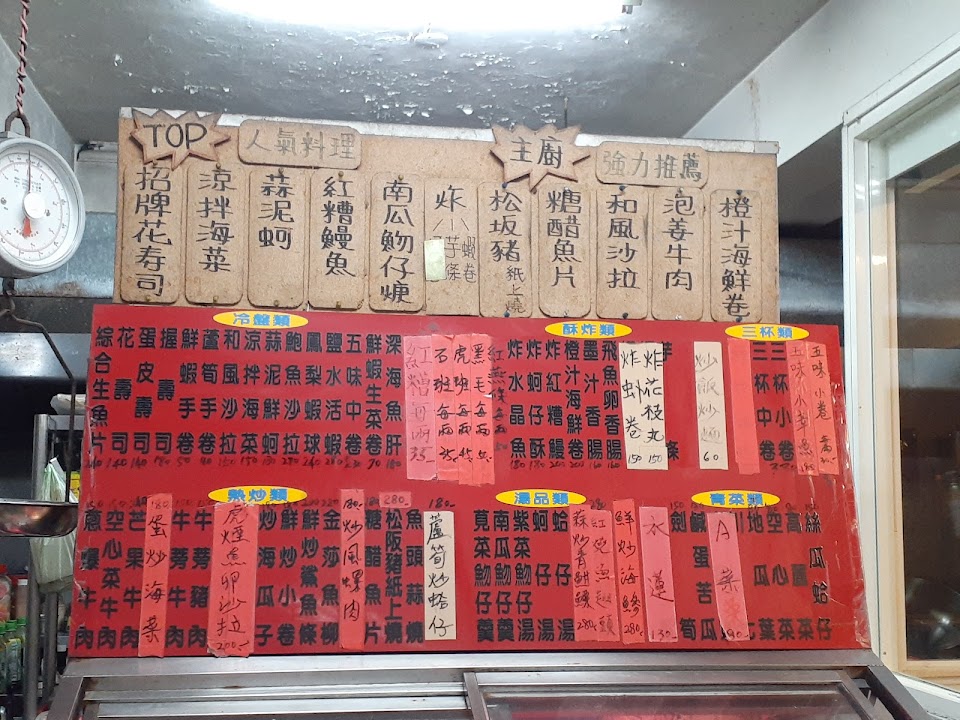 TOP
人氣料理
主廚
強力推薦
招牌花寿司
涼拌海菜
蒜泥蚵
紅糟鰻魚
南瓜魩仔焿
炸
蝦卷
芋條
松坂豬紙上燒
糖醋魚片
和風沙拉
泡姜牛肉
橙汁海鮮卷
冷盤類
酥炸類
三杯類
綜合生魚片
花壽司
蛋皮壽司
握壽司
鮮蝦手卷
蘆筍手卷
和風沙拉
涼拌海菜
蒜泥鮮蚵
鮑魚沙拉
鳳梨蝦球
鹽水活蝦
五味中卷
鮮蝦生菜
深海魚肝
石斑每兩
虎斑每兩
黑毛每兩
炸水晶魚
炸蚵酥
炸紅糟鰻
橙汁海鮮卷
墨汁香腸
飛魚卵香腸
炸蝦卷
150
炸花枝丸
150
炒飯炒麵
60
三杯中卷
三杯小卷
五味小卷
熱炒類
湯品類
青菜類
蔥爆牛肉
空心菜牛肉
芒果牛肉
蛋炒海菜
牛蒡牛肉
牛蒡豬肉
虎煙魚卵沙拉
200
炒海瓜子
鮮炒小卷
炒鯊魚條
金莎魚柳
180
炒風螺肉
糖醋魚片
280
松阪豬紙上燒
魚頭蒜燒
180
蘆筍炒蛤仔
莧菜魩仔羹
南瓜魩仔羹
紫菜魩仔湯
蚵仔湯
蛤仔湯
280
鮮炒海鱔
280
水蓮
130
劍筍
鹹蛋苦瓜
A菜
川七
地瓜葉
空心菜
高麗菜
絲瓜蛤仔